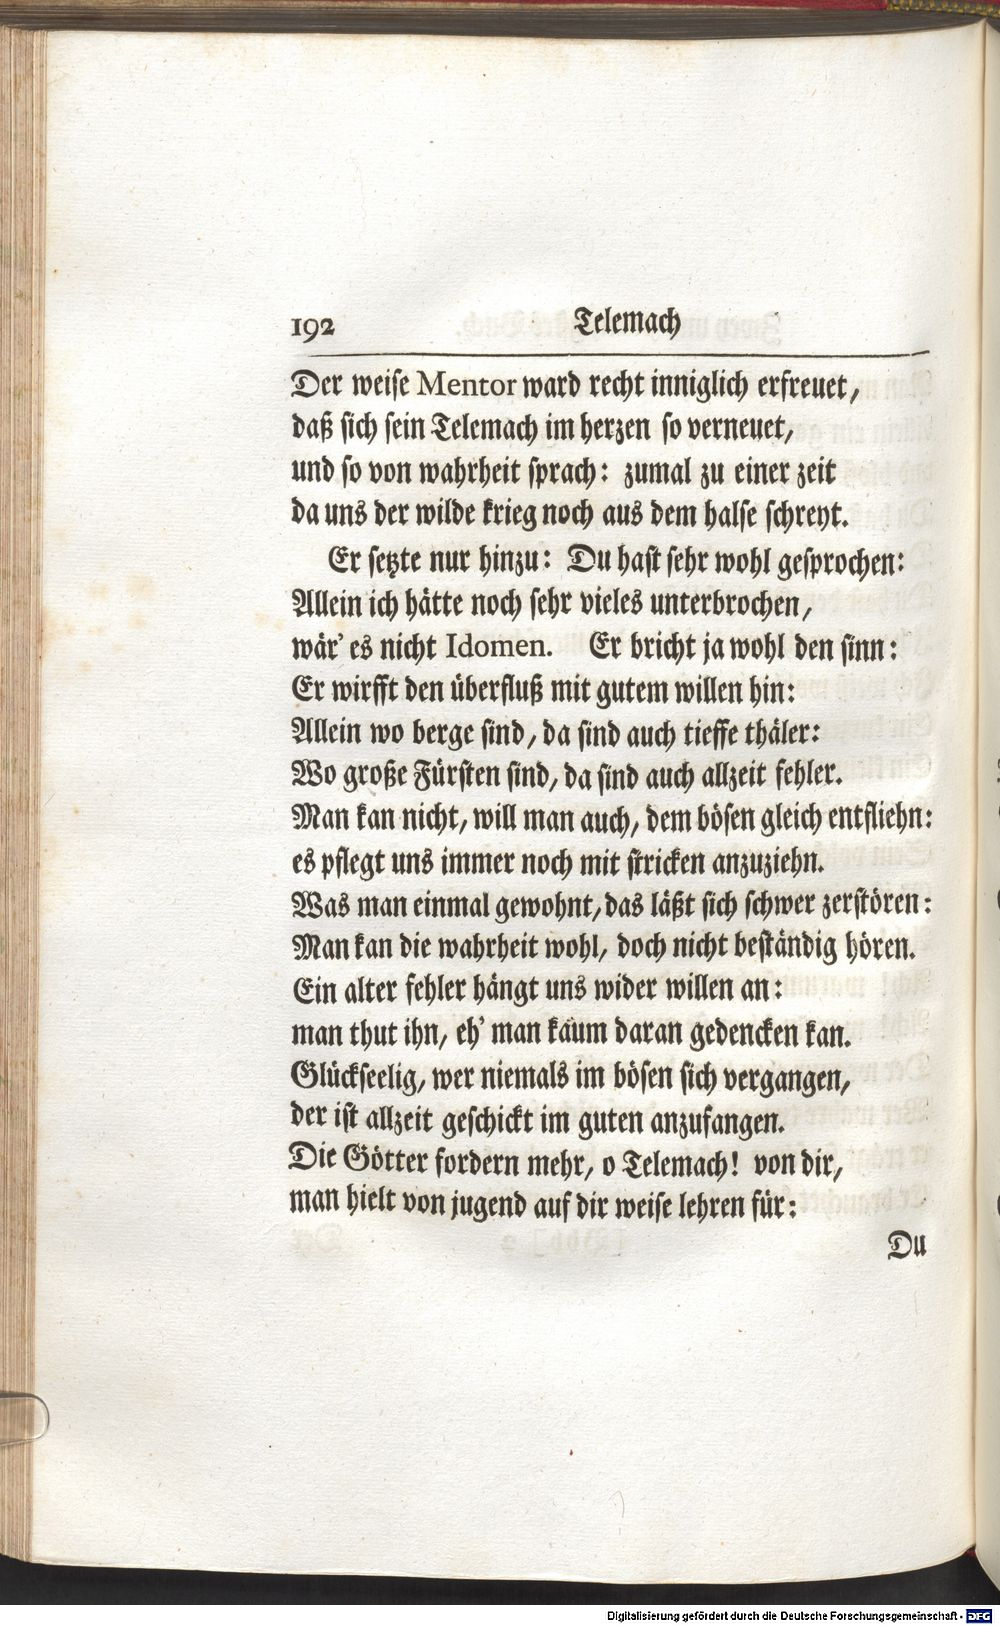 192 Telemach
Der weise Mentor ward recht inniglich erfreuet,
daß sich sein Telemach im herzen so verneuet,
und so von wahrheit sprach: zumal zu einer zeit
da uns der wilde krieg noch aus dem halse schreyt.
Er setzte nur hinzu: Du hast sehr wohl gesprochen:
Allein ich hätte noch sehr vieles unterbrochen,
wär' es nicht Idomen. Er bricht ja wohl den sinn:
Er wirfft den überfluß mit gutem willen hin:
Allein wo berge sind, da sind auch tieffe thäler:
Wo große Fürsten sind, da sind auch allzeit fehler.
Man kan nicht, will man auch, dem bösen gleich entfliehn:
es pflegt uns immer noch mit stricken anzuziehn.
Was man einmal gewohnt, das läßt sich schwer zerstören:
Man kan die wahrheit wohl, doch nicht beständig hören.
Ein alter fehler hängt uns wider willen an:
man thut ihn, eh' man kaum daran gedencken kan.
Glückseelig, wer niemals im bösen sich vergangen,
der ist allzeit geschickt im guten anzufangen.
Die Götter fordern mehr, o Telemach! von dir,
man hielt von jugend auf dir weise lehren für:
Du
Digitalisierung gefördert durch die Deutsche Forschungsgemeinschaft - DFG